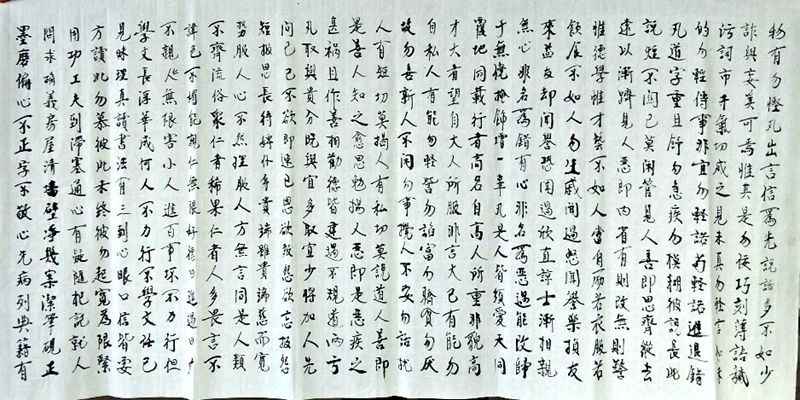 物有勿慳凡出言信為先說話多不如少
詐與妄奚可焉惟其是勿佞巧刻薄語穢
污詞市井氣切戒之見未真勿輕言知未
的勿輕傳事非宜勿輕諾苟輕諾進退錯
凡道字重且舒勿急疾勿模糊彼說長此
說短不関己莫閑管見人善即思齊縱去
遠以漸躋見人惡即內省有則改無則警
惟德學惟才藝不如人當自勵若衣服若
飲食不如人勿生戚聞過怒聞譽樂損友
來益友却聞譽恐聞過欣直諒士漸相親
無心非名為錯有心非名為惡過能改歸
于無倘掩飾增一辜凡是人皆須愛天同
覆地同載行者高名自高人所重非貌高
才大者望自大人所服非言大己有能勿
自私人有能勿輕訾勿諂富勿驕貧勿厌
故勿喜新人不闲勿事攪人不安勿話扰
人有短切莫揭人有私切莫說道人善即
是善人知之愈思勉揚人惡即是惡疾之
甚禍且作善相勸德皆建過不規道両亏
凡取與貴分曉與宜多取宜少將加人先
问己己不欲即速已恩欲報怨欲忘報怨
短報恩長待婢仆身貴端雖貴端慈而寬
势服人心不然理服人方無言同是人類
不齊流俗眾仁者稀果仁者人多畏言不
諱色不媚能親仁無限好德日進過日少
不親仁無限害小人進百事坏不力行但
學文長浮華成何人不力行不學文任己
見昧理真讀書法有三到心眼口信皆要
方讀此勿慕彼此未終彼勿起寬為限緊
用功工夫到滯塞通心有疑隨札記就人
问求确義房屋清墙壁净幾案潔筆硯正
墨磨偏心不正字不敬心先病列典籍有